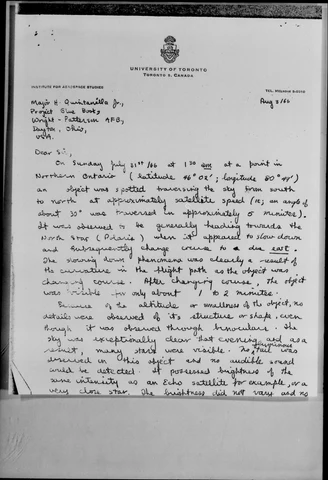 UNIVERSITY OF TORONTO
TORONTO 5, CANADA
INSTITUTE FOR AEROSPACE STUDIES
Aug 3/66
Major H. Quintanilla Jr,
Project Blue Book,
Wright-Patterson AFB,
Dayton, Ohio,
USA.
Dear Sir,
On Sunday July 31st/66 at 1:30 am at a point in
Northern Ontario (latitude 46° 02'; longitude 80° )
an object was spotted traversing the sky from south
to north at approximately satellite speed (ie; an angle of
about 30° was traversed in approximately 5 minutes).
It was observed to be generally heading towards the
North Star (Polaris) when it appeared to slow down
and subsequently change course to a due east.
The slowing down phenomena was clearly a result of
the curvature in the flight path as the object was
changing course. After changing course, the object
was visible for only about 1 to 2 minutes.
Because of the altitude or smallness of the object, no
details were observed of it's structure or shape, even
though it was observed through binoculars. The
sky was exceptionally clear that evening and as a
result, many stars were visible. No trail was
observed in this object and no audible sound
could be detected. It possessed brightness of the
same intensity as an Echo satellite for example, or a
very close star. The brightness did not vary and no